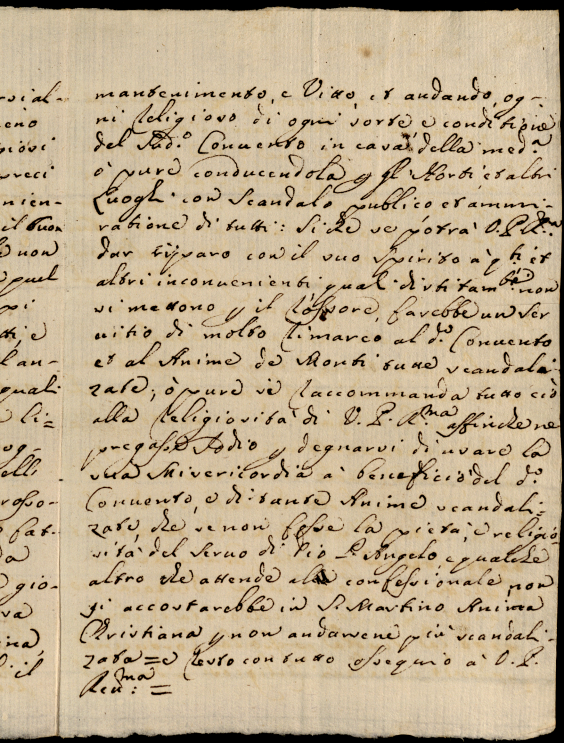 mantenimento, e Vitto, et andando, og-
ni Religioso di ogni sorte e conditione
del Sud.º Convento in casa della med.ª
ò pure conducendola p gl'Horti, et altri
Luoghi con Scandalo publico et ammi-
ratione di tutti: Si che se potrà V. P. R.ma
dar riparo con il suo Spirito à q.ti et
altri inconvenienti quali distitam.te non
si mettono p il Rossore, farebbe un Ser
vitio di molto Rimarco al d.º Convento
et al Anime de Monti tutte scandali
zate; ò pure se Raccommanda tutto ciò
alla Religiosità di V. P. R.ma affinche ne
pregasse Iddio p degnarsi di usare la
sua Misericordia à beneficio del d.º
Convento, e di tante Anime scandali=
zate, che se non fosse la pietà, e religio
sità del Servo di Dio P. Angelo, e qualche
altro che attende al confessionale, non
si accostarebbe in S. Martino Anima
Christiana p non andarsene più scandali-
zata = e Resto con tutto ossequio à V. P.
Rev.ma : =
rsial-
eno
giosi
preci
nien-
il buon
e non
quel
pi
tti, e
l'an-
quali
e li=
og-
elli
rosso-
fat-
da
gio-
va
ina,
il